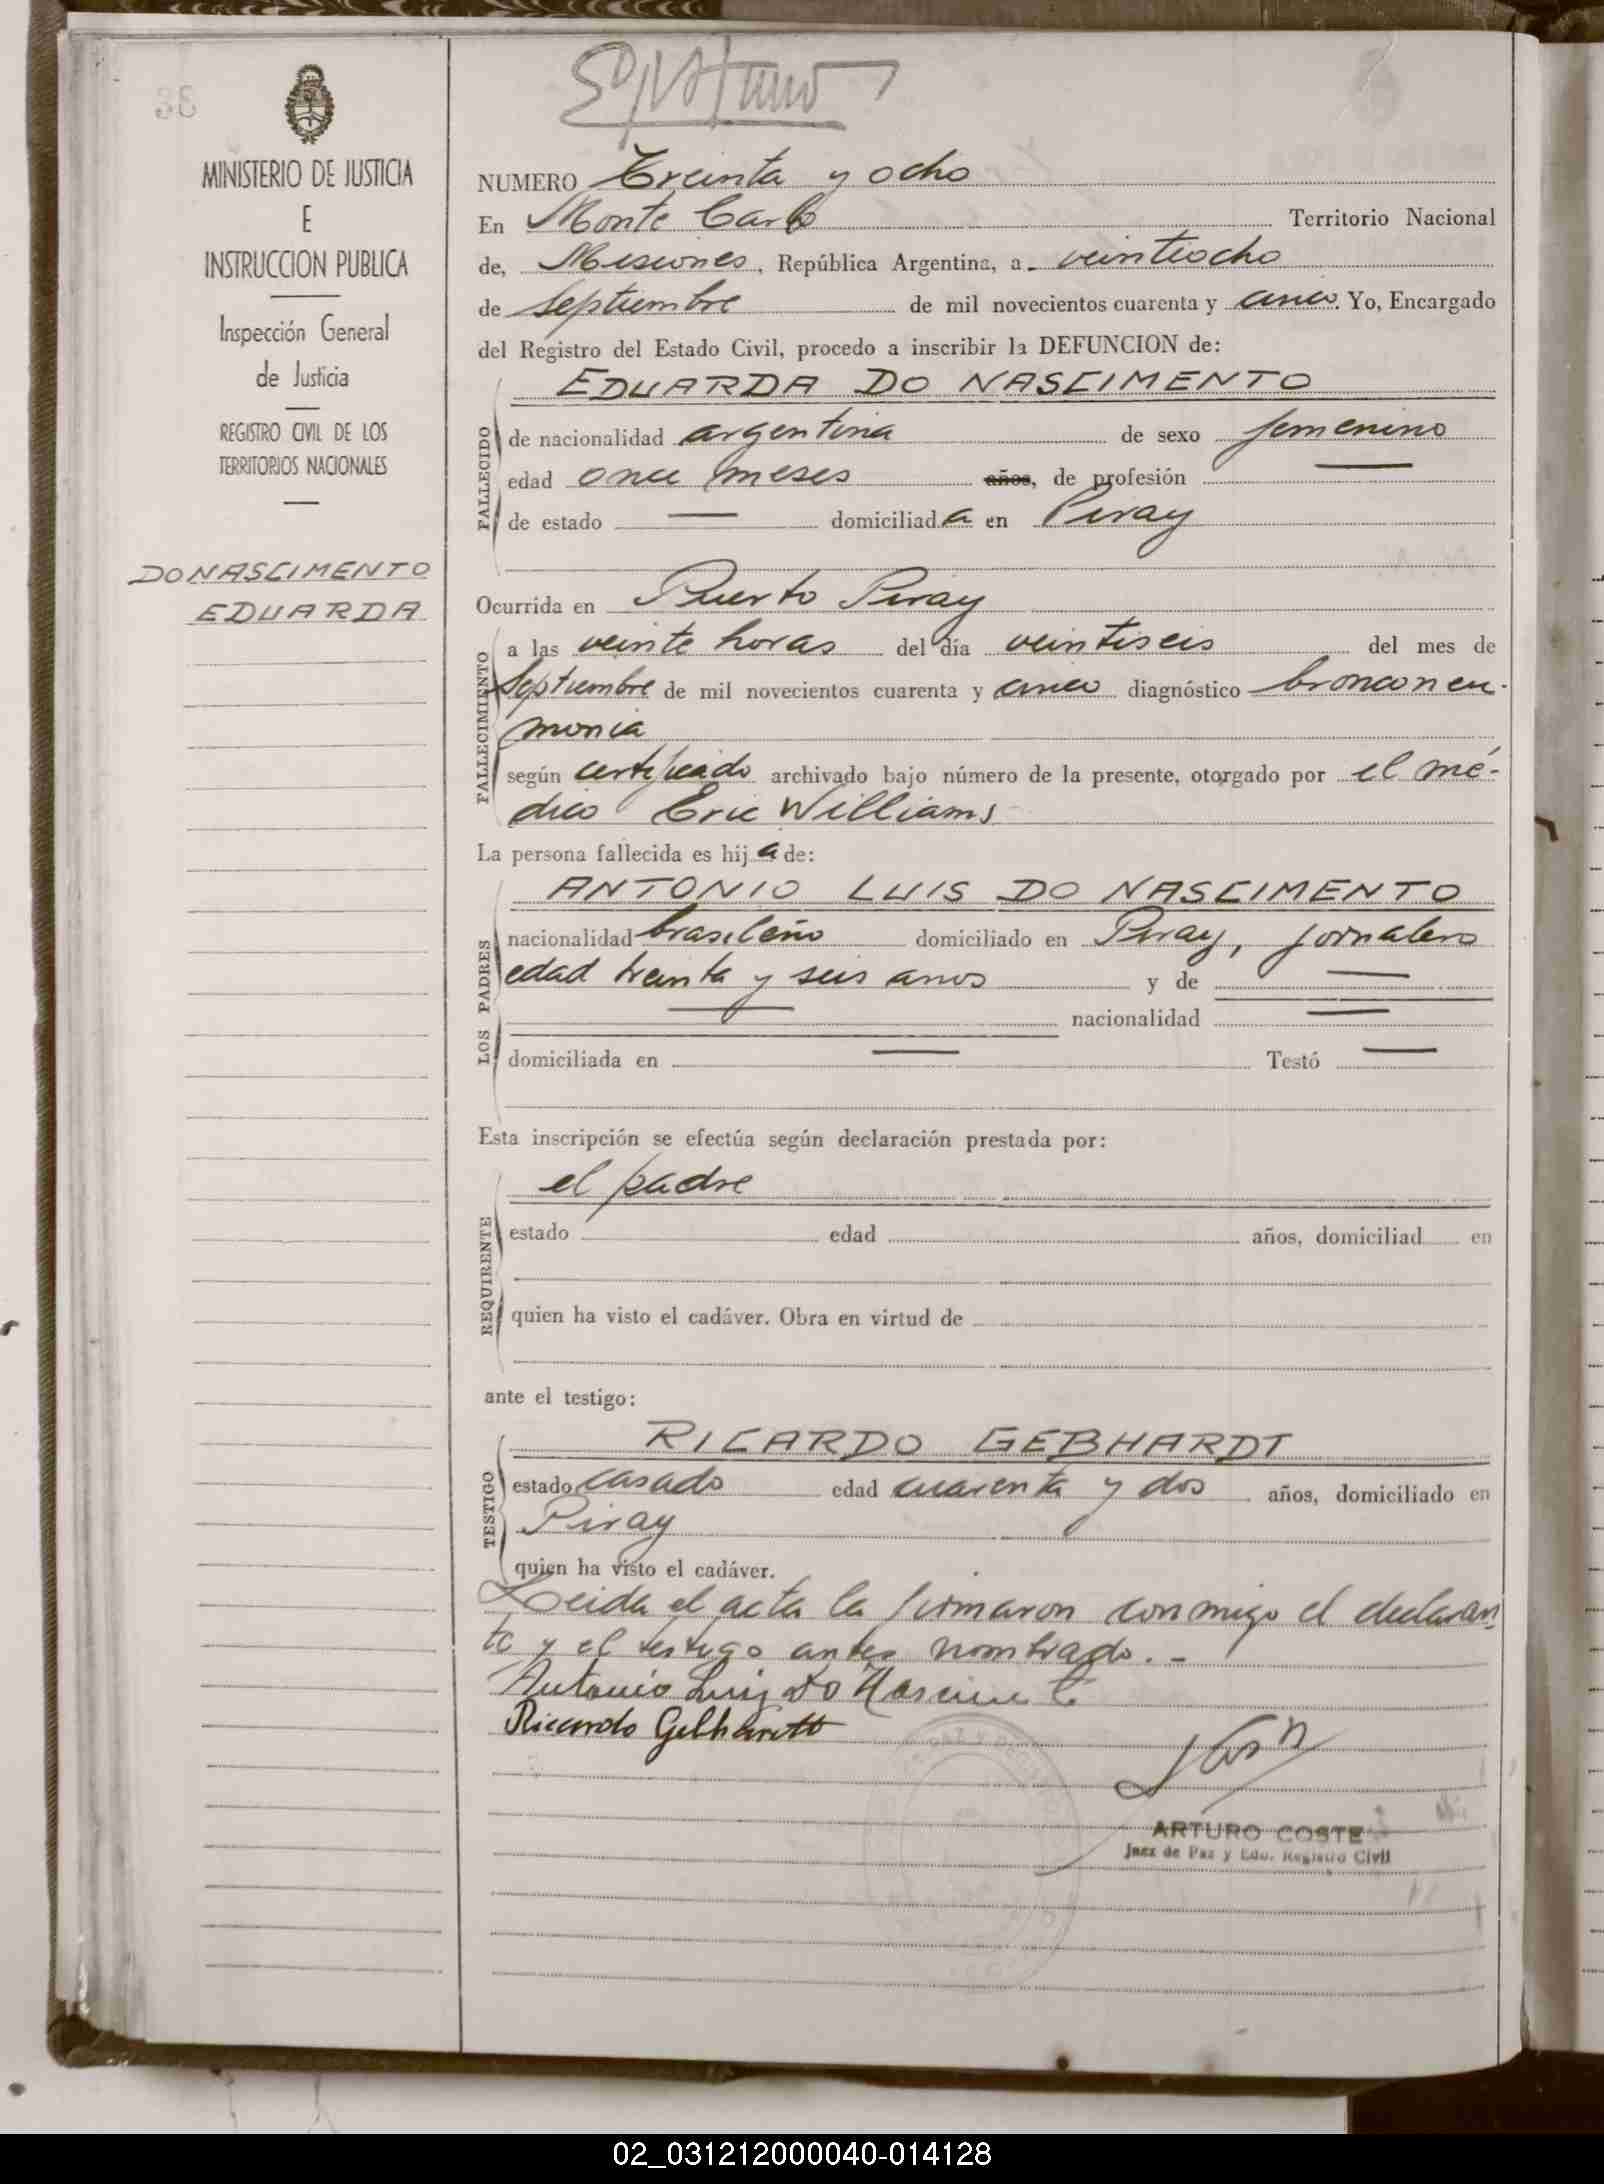 38
MINISTERIO DE JUSTICIA
E
INSTRUCCION PUBLICA
Inspección General
de Justicia
REGISTRO CIVIL DE LOS
TERRITORIOS NACIONALES
DO NASCIMENTO
EDUARDA
NUMERO Treinta y ocho
En Monte Carlo Territorio Nacional
de, Misiones, República Argentina, a veintiocho
de Septiembre de mil novecientos cuarenta y cinco. Yo, Encargado
del Registro del Estado Civil, procedo a inscribir la DEFUNCION de:
FALLECIDO
EDUARDA DO NASCIMENTO
de nacionalidad argentina de sexo femenino
edad once meses años, de profesión —
de estado — domiciliada en Piray
Ocurrida en Puerto Piray
FALLECIMIENTO
a las veinte horas del día veintiseis del mes de
Septiembre de mil novecientos cuarenta y cinco diagnóstico bronconeu-
monia
según certificado archivado bajo número de la presente, otorgado por el mé-
dico Eric Williams
La persona fallecida es hija de:
LOS PADRES
ANTONIO LUIS DO NASCIMENTO
nacionalidad brasileño domiciliado en Piray, jornalero
edad treinta y seis anos y de —
— nacionalidad —
domiciliada en — Testó —
Esta inscripción se efectúa según declaración prestada por:
REQUIRENTE
el padre
estado edad años, domiciliad en
quien ha visto el cadáver. Obra en virtud de
ante el testigo:
TESTIGO
RICARDO GEBHARDT
estado casado edad cuarenta y dos años, domiciliado en
Piray
quien ha visto el cadáver.
Leida el acta la firmaron conmigo el declaran
te y el testigo antes nombrado. -
Antonio Luiz do Nascimento
Ricardo Gebhardt
ARTURO COSTE
Juez de Paz y Edo. Registro Civil
02_031212000040-014128